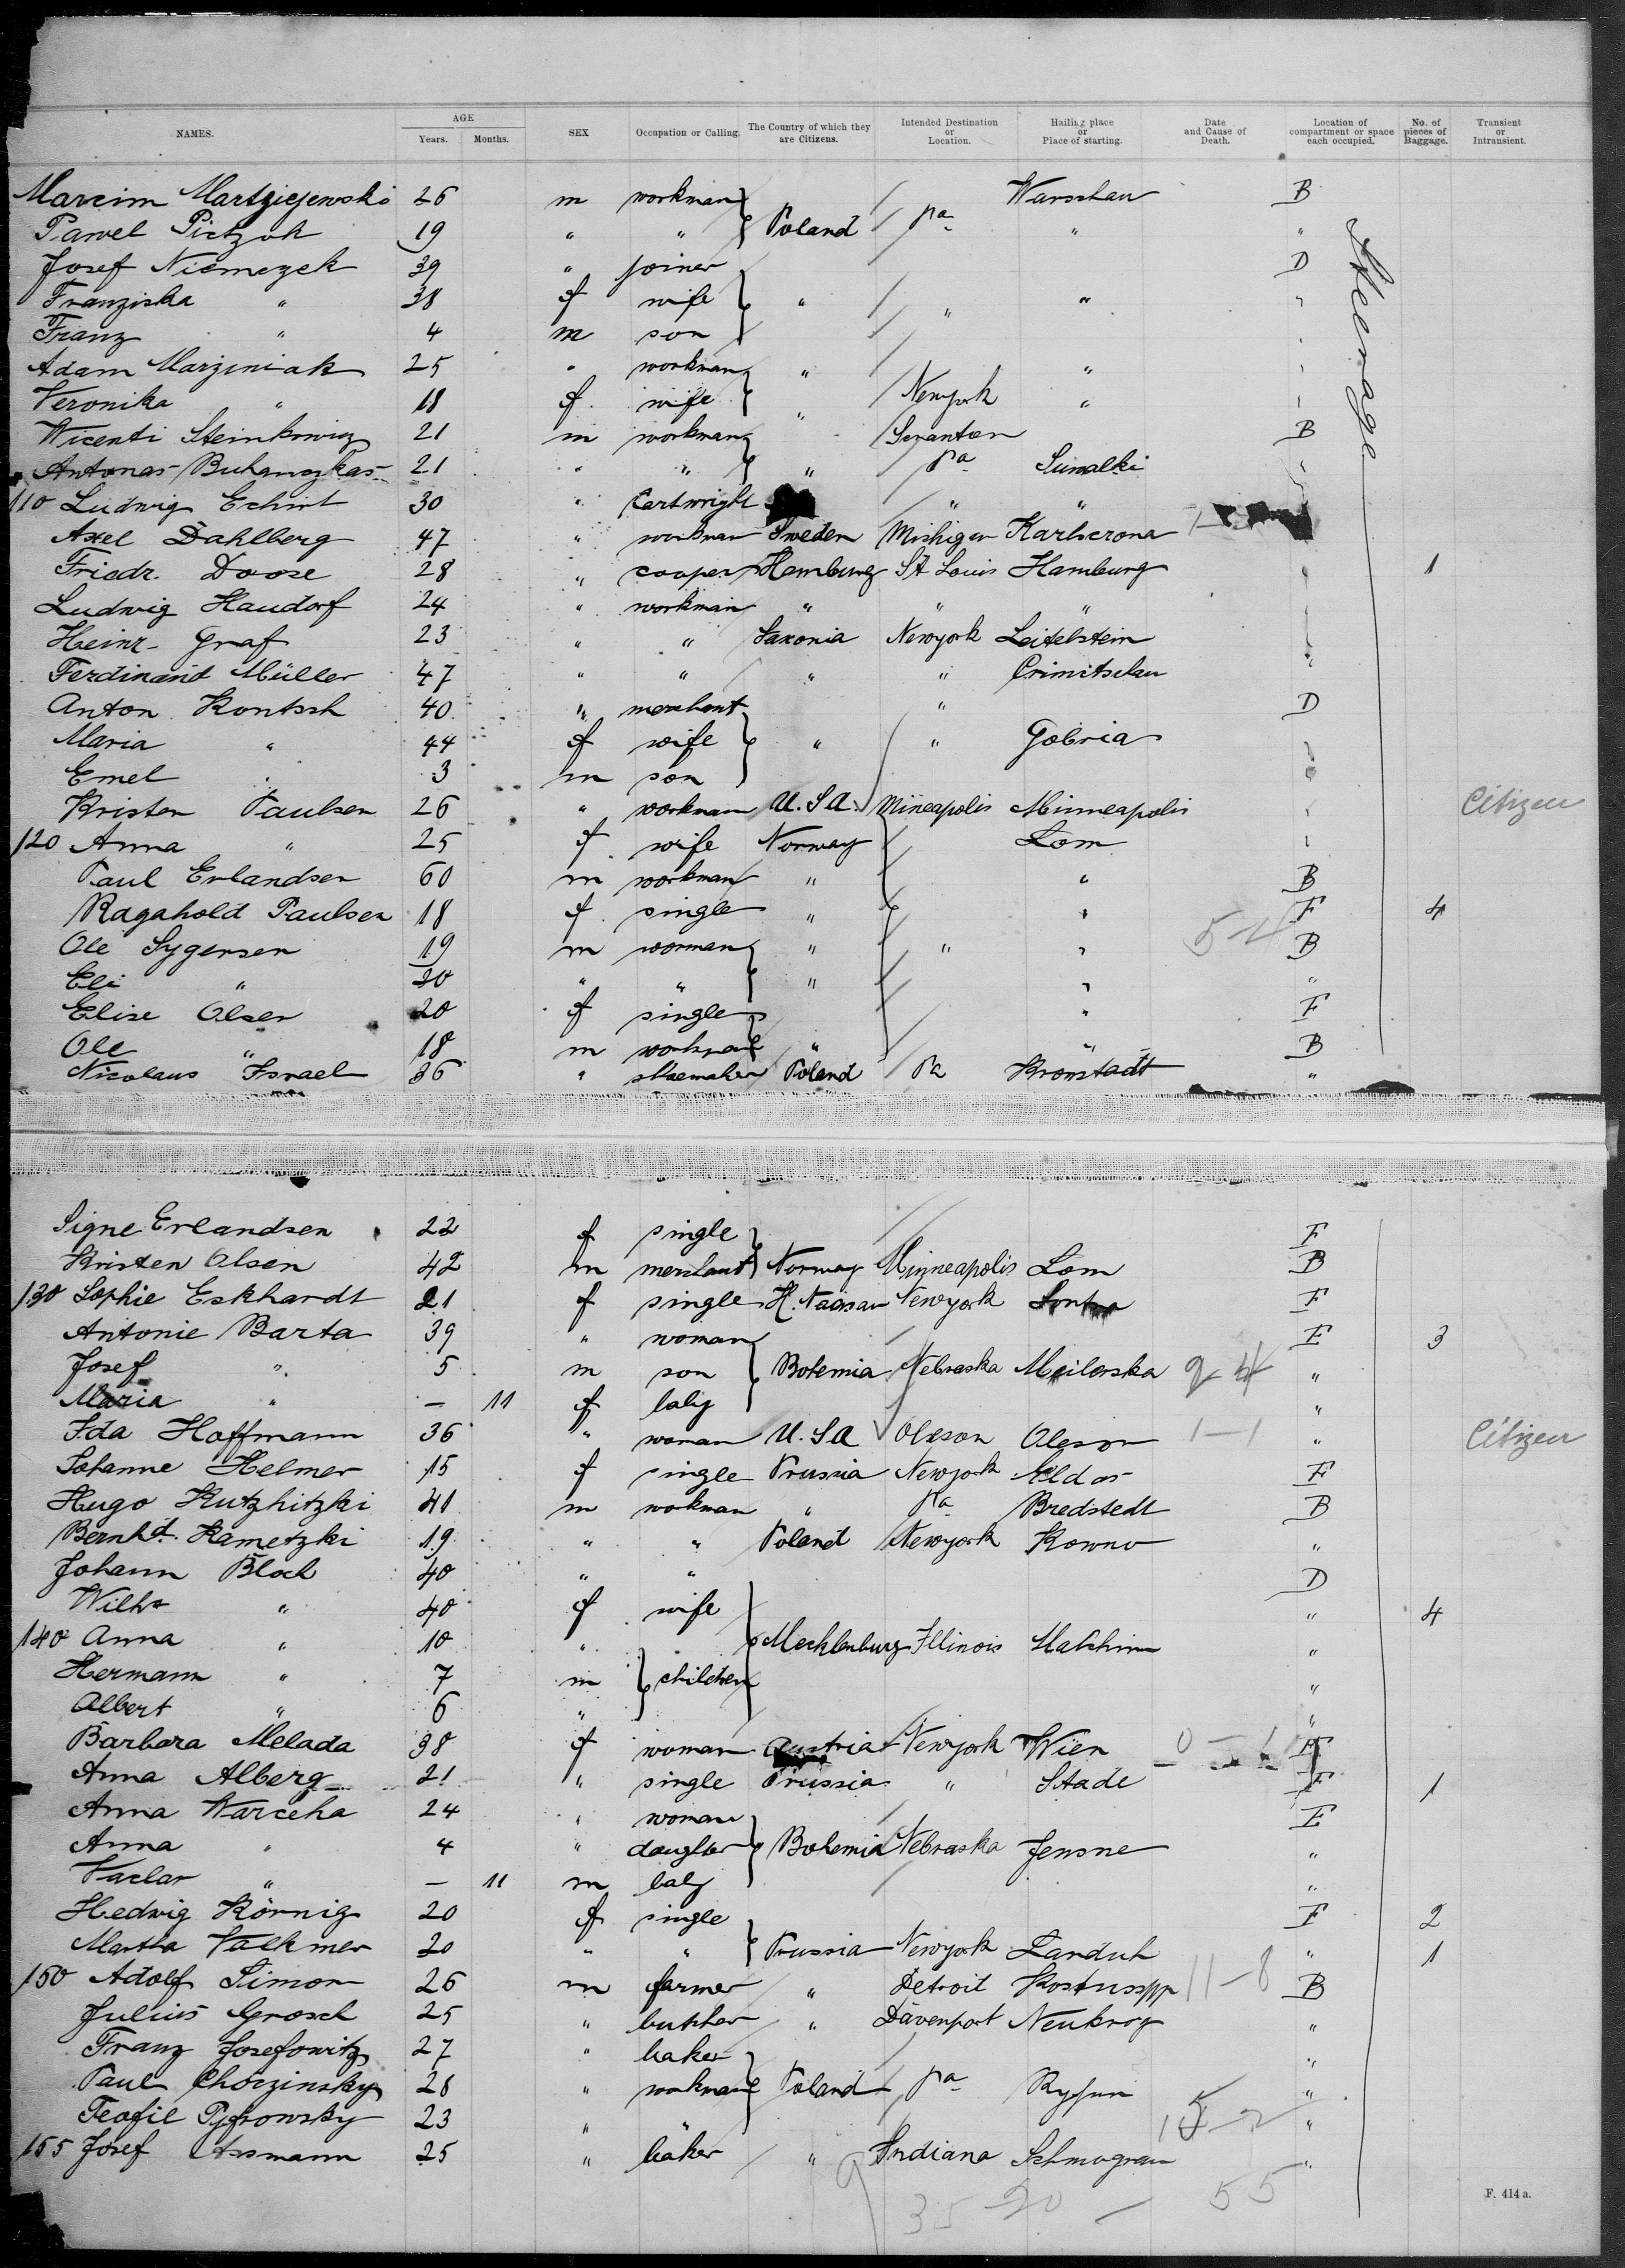 NAMES. AGE Years. Months. SEX Occupation or Calling. The Country of which they are Citizens. Intended Destination or Location. Hailing place or Place of starting. Date and Cause of Death. Location of compartment or space each occupied. No. of pieces of Baggage. Transient or Intransient.
Marcim Martziejewski 26 m workman Warschau B
Pawel Pietzok 19 " " Poland Pa "  "
Josef Niemczek 39 " joiner D
Franziska " 38 f wife " " " "
Franz " 4 m son
Adam Marziniak 25 " workman " "
Veronika " 18 f wife Newyork "
Wicenti Steinkowicz 21 m workman " Scranton B
Antonas 21 " " " Pa Suwalki "
110 Ludwig Echirt 30 " Cartwright " "
Axel Dahlberg 47 " workman Sweden Michigan Karlscrona
Friedr. Doose 28 " cooper Hamburg St Louis Hamburg 1
Ludwig Haudorf 24 " workman " " "
Heinr. Graf 23 " " Saxonia Newyork Leitelstein
Ferdinand Müller 47 " " " " Crimitschau
Anton Kontsch 40 " merchant " D
Maria " 44 f wife " " Gobria
Emel " 3 m son
Kristen Paulsen 26 " workman U.S.A. Mineapolis Minneapolis Citizen
120 Anna " 25 f wife Norway Lom
Paul Erlandsen 60 m workman " " B
Ragahold Paulsen 18 f single " " F 4
Ole Sygersen 19 m worman " " " B
Eli " 20 " " " " "
Elise Olsen 20 f single " F
Ole " 18 m workman " " B
Nicolaus Israel 36 " shoemaker Poland Pa Kronstadt "
Steerage
Signe Erlandsen 22 f single F
Kristen Olsen 42 m merchant Norway Minneapolis Lom B
130 Sophie Eskhardt 21 f single H. Nassau Newyork Sontra F
Antonie Barta 39 " woman E 3
Josef " 5 m son Bohemia Nebraska "
Maria " — 11 f baby "
Ida Hoffmann 36 " woman U.S.A Oleson Oleson 1-1 " Citizen
Johanne Helmer 15 f single Prussia Newyork Eldas F
Hugo Kutzhitzki 41 m workman " Pa Bredstedt B
Bernhd. Kametzki 19 " " Poland Newyork Kowno "
Johann Bloch 40 " " D
Wilha " 40 f wife " 4
140 Anna " 10 " Mecklenburg Illinois Malchin "
Hermann " 7 m children "
Albert " 6 " "
Barbara Melada 38 f woman Austria Newyork Wien
Anna Alberg 21 " single Prussia " Stade F 1
Anna Warceha 24 " woman E
Anna " 4 " daughter Bohemia Nebraska Jensne "
Vaclav " — 11 m baby "
Hedwig Körnig 20 f single F 2
Martha Valkmer 20 " " Prussia Newyork Landuh " 1
150 Adolf Simon 26 m farmer " Detroit 11-8 B
Julius Grosch 25 " butcher " Davenport Neukrog "
Franz Josefowitz 27 " baker "
Paul Chorzinsky 28 " workman Poland Pa Rypun "
Teofil 23 " "
155 Josef Assmann 25 " baker " Indiana Schmograu "
55
F. 414 a.